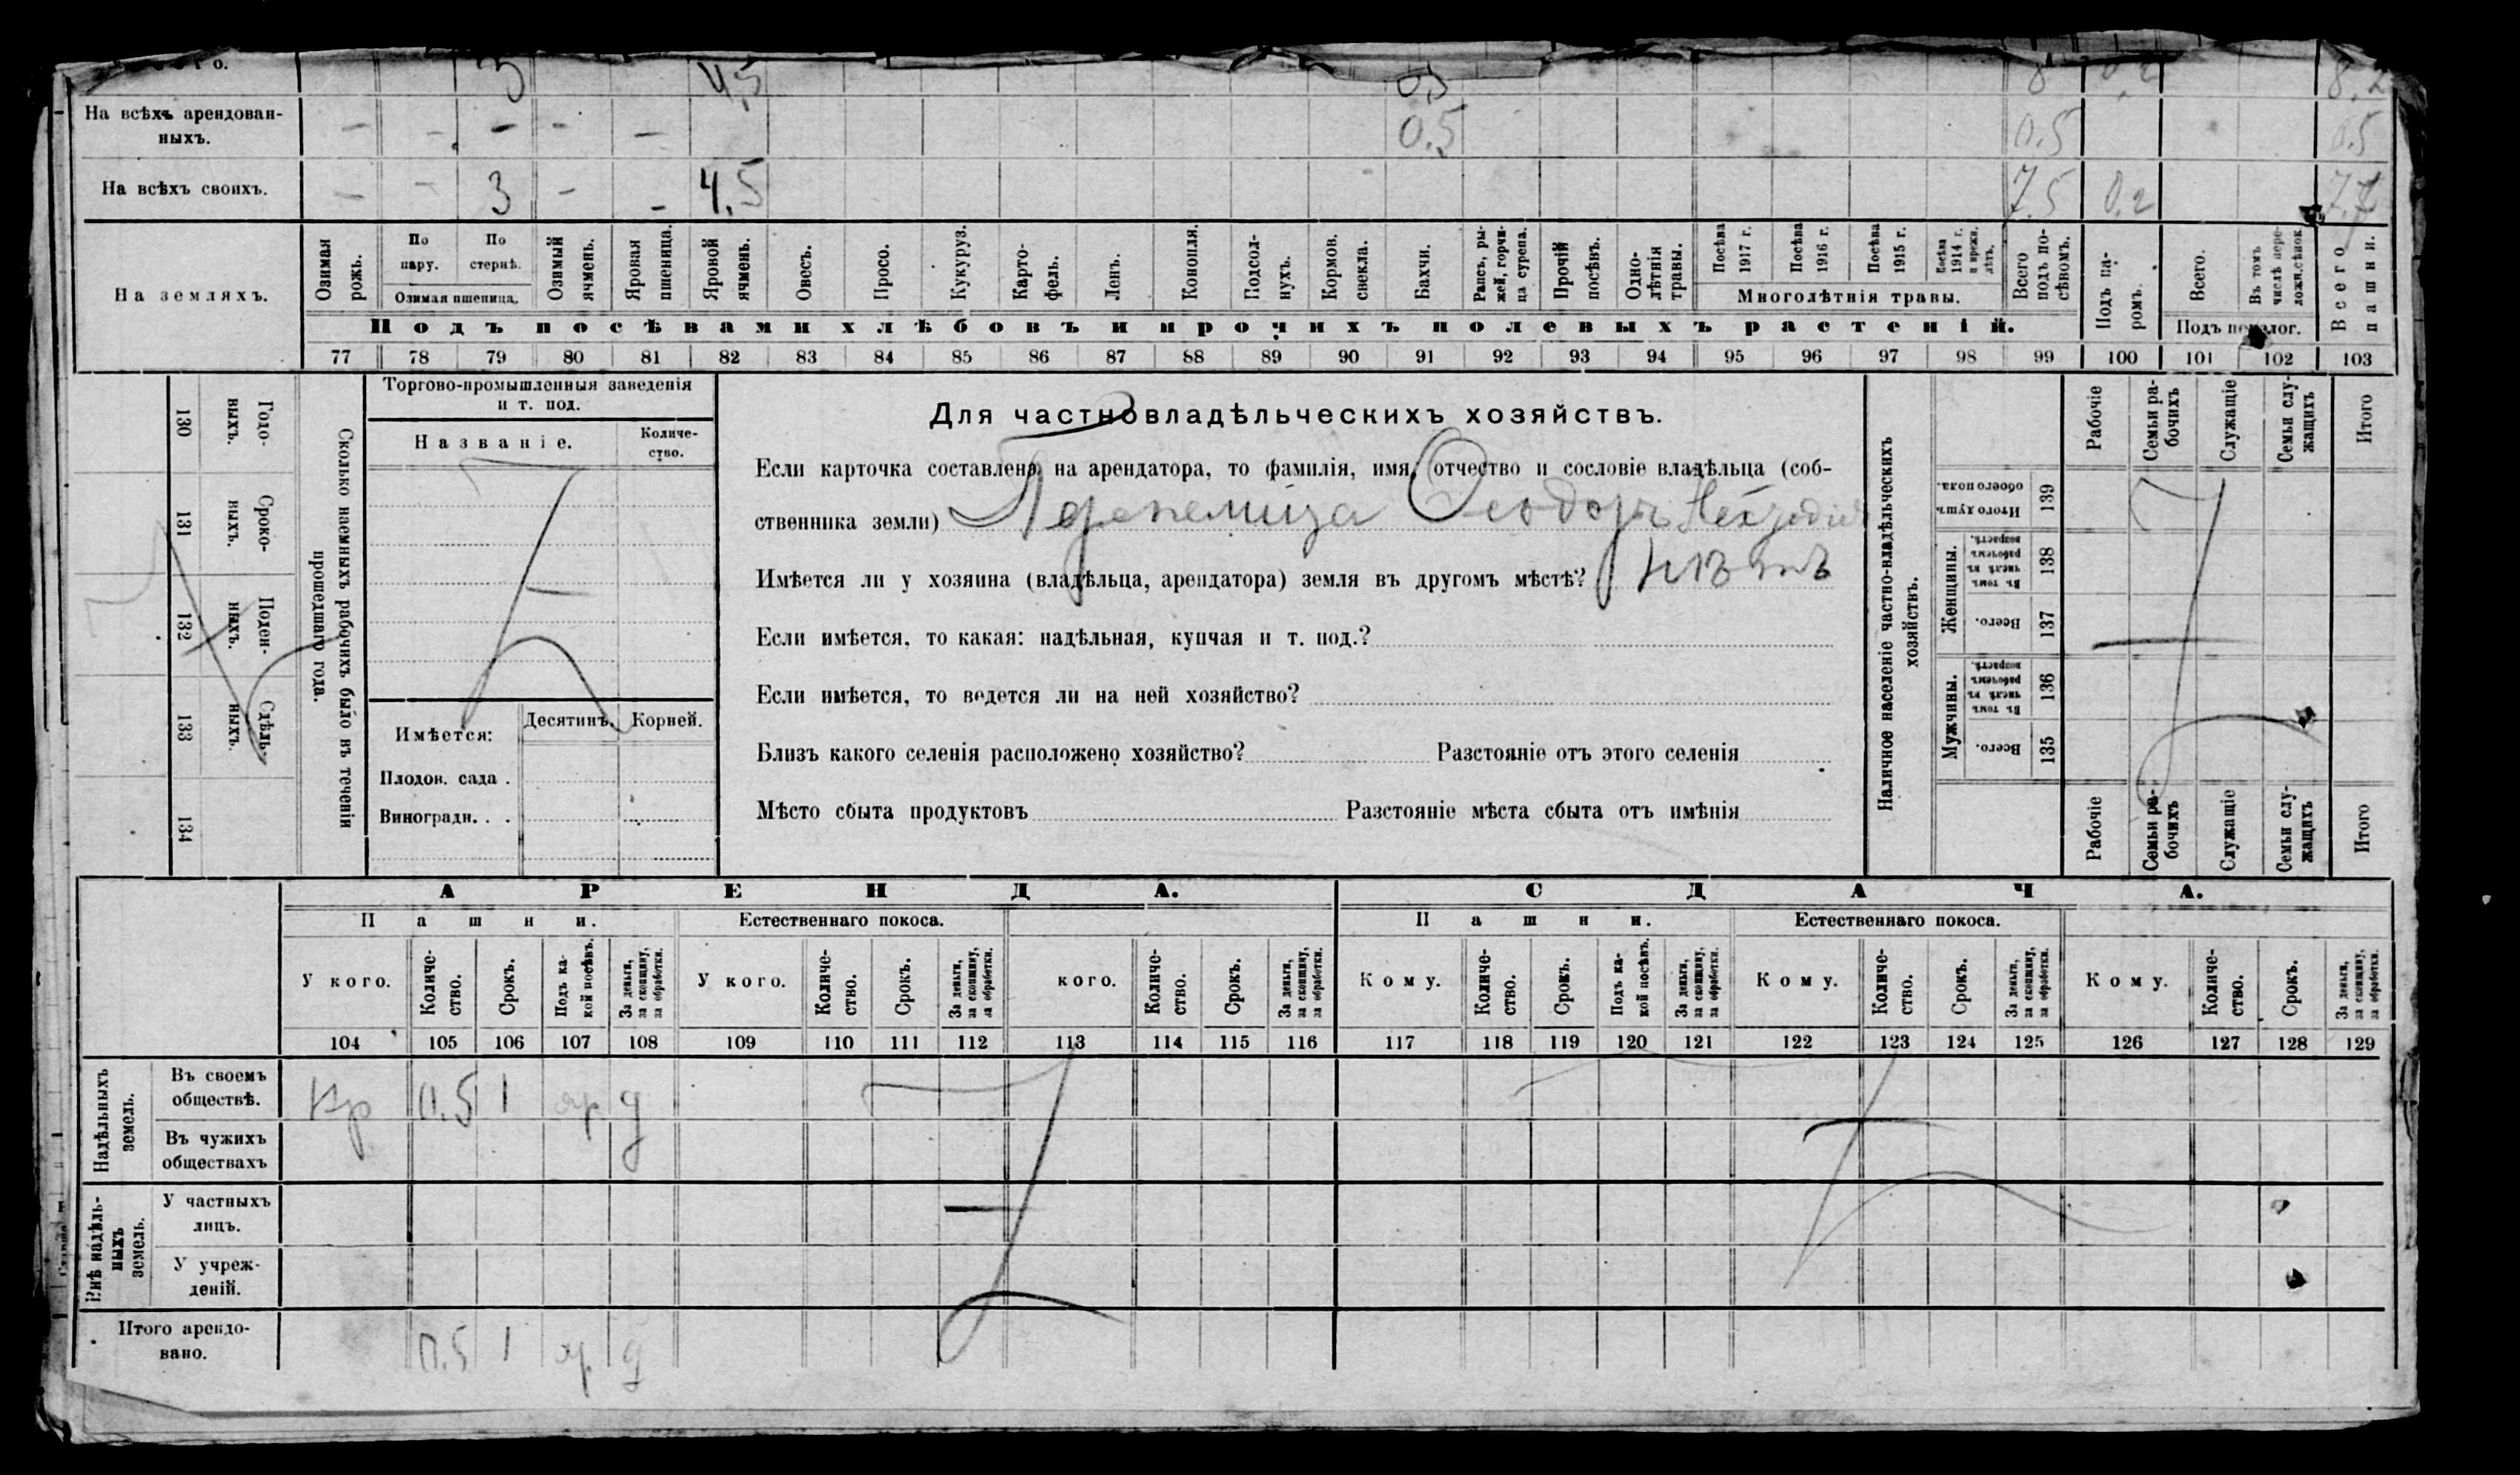 о. 3 4,5 0,5 8 0,2 8,2
На всѣхъ арендован-
ныхъ. — - - - — 0,5 0,5 0,5
На всѣхъ своихъ. — - 3 - - 4,5 7,5 0,2 7,7
На земляхъ.
Озимая рожь.
По пару.
По стернѣ.
Озимая пшеница.
Озимый ячмень.
Яровая пшеница.
Яровой ячмень.
Овесъ.
Просо.
Кукуруз.
Карто-
фель.
Ленъ.
Конопля.
Подсол-
нухъ.
Кормов.
свекла.
Бахчи.
Рапсъ, ры-
жей, горчи-
ца сурепа.
Прочій
посѣвъ.
Одно-
лѣтнія
травы.
Посѣва
1917 г.
Посѣва
1916 г.
Посѣва
1915 г.
Посѣва
1914 г.
и прежн.
лѣтъ.
Многолѣтнія травы.
Всего
подъ по-
сѣвомъ.
Подъ па-
ромъ.
Всего.
Въ томъ
числѣ пере-
лож.сѣнок.
Подъ
Всего
пашни.
Подъ посѣвами хлѣбовъ и прочихъ полевыхъ растеній.
77 78 79 80 81 82 83 84 85 86 87 88 89 90 91 92 93 94 95 96 97 98 99 100 101 102 103
Сколько наемныхъ рабочихъ было въ теченіи
прошедшаго года.
Годо-
выхъ.
130
Сроко-
выхъ.
131
Поден-
ныхъ.
132
Сдѣль-
ныхъ.
133
134
Торгово-промышленныя заведенія
и т. под.
Названіе.
Количе-
ство.
Имѣется:
Десятинъ.
Корней.
Плодов. сада .
Виноградн. . .
Для частновладѣльческихъ хозяйствъ.
Если карточка составлена на арендатора, то фамилія, имя, отчество и сословіе владѣльца (соб-
ственника земли) Феодоръ
Имѣется ли у хозяина (владѣльца, арендатора) земля въ другомъ мѣстѣ? нѣтъ
Если имѣется, то какая: надѣльная, купчая и т. под.?
Если имѣется, то ведется ли на ней хозяйство?
Близъ какого селенія расположено хозяйство? Разстояніе отъ этого селенія
Мѣсто сбыта продуктовъ Разстояніе мѣста сбыта отъ имѣнія
Наличное населеніе частно-владѣльческихъ
хозяйствъ.
Рабочіе
Семьи ра-
бочихъ
Служащіе
Семьи слу-
жащихъ
Итого
Итого душъ
обоего пола.
139
Женщины.
Въ томъ
числѣ въ
рабочемъ
возрастѣ.
138
Всего.
137
Мужчины.
Въ томъ
числѣ въ
рабочемъ
возрастѣ.
136
Всего.
135
Рабочіе
Семьи ра-
бочихъ
Служащіе
Семьи слу-
жащихъ
Итого
АРЕНДА. СДАЧА.
Пашни. Естественнаго покоса. Пашни. Естественнаго покоса.
У кого.
Количе-
ство.
Срокъ.
Подъ ка-
кой посѣвъ.
За деньги,
за скопщину,
за обработки.
У кого.
Количе-
ство.
Срокъ.
За деньги,
за скопщину,
за обработки.
кого.
Количе-
ство.
Срокъ.
За деньги,
за скопщину,
за обработки.
Кому.
Количе-
ство.
Срокъ.
Подъ ка-
кой посѣвъ.
За деньги,
за скопщину,
за обработки.
Кому.
Количе-
ство.
Срокъ.
За деньги,
за скопщину,
за обработки.
Кому.
Количе-
ство.
Срокъ.
За деньги,
за скопщину,
за обработки.
104 105 106 107 108 109 110 111 112 113 114 115 116 117 118 119 120 121 122 123 124 125 126 127 128 129
Надѣльныхъ
земель.
Въ своемъ
обществѣ. Кр 0.5 1 яр д
Въ чужихъ
обществахъ
Внѣ надѣль-
ныхъ
земель.
У частныхъ
лицъ.
У учреж-
деній.
Итого арендо-
вано. 0.5 1 яр д